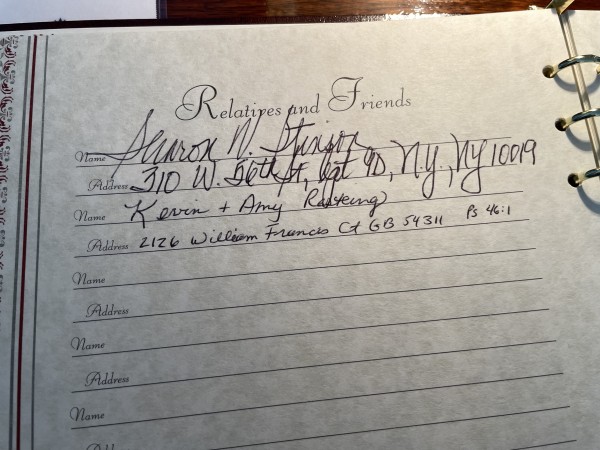 Relatives and Friends
Name Sharon N. Stinson
Address 310 W. 56th St, Apt 9D, N.Y., NY 10019
Name Kevin + Amy
Address 2126 William Francis Ct GB 54311 Ps 46:1
Name
Address
Name
Address
Name
Address